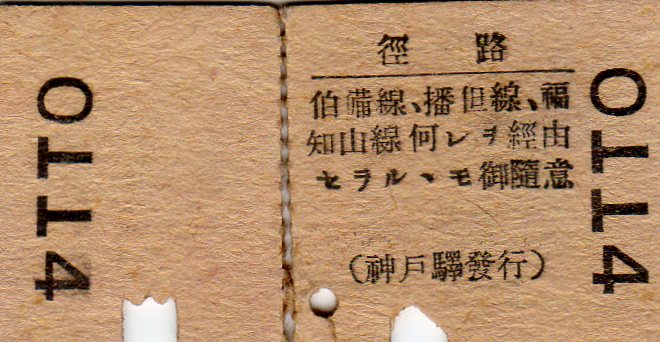 0114
徑路
伯備線、播但線、福
知山線何レヲ經由
セラルヽモ御隨意
(神戸驛發行)
0114